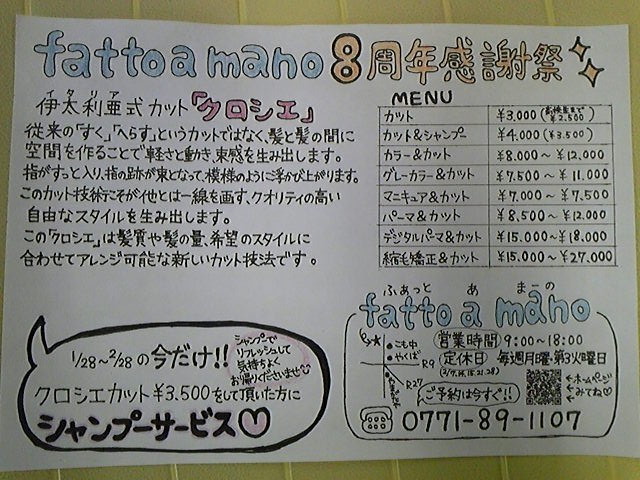 fatto a mano 8周年感謝祭
イタリア
伊太利亜式カット「クロシエ」
従来の「すく」「へらす」というカットではなく、髪と髪の間に
空間を作ることで軽さと動き、束感を生み出します。
指がすっと入り、指の跡が束となって、模様のように浮かび上がります。
このカット技術こそが他とは一線を画す、クオリティの高い
自由なスタイルを生み出します。
この「クロシエ」は髪質や髪の量、希望のスタイルに
合わせてアレンジ可能な新しいカット技法です。
MENU
カット ¥3,000 (高校生まで ¥2,500)
カット&シャンプー ¥4,000 (¥3,500)
カラー&カット ¥8,000〜¥12,000
グレーカラー&カット ¥7,500〜¥11,000
マニキュア&カット ¥7,000〜¥7,500
パーマ&カット ¥8,500〜¥12,000
デジタルパーマ&カット ¥15,000〜¥18,000
縮毛矯正&カット ¥15,000〜¥27,000
1/28〜2/28の今だけ!!
シャンプーで
リフレッシュして
気持ちよく
お帰りくださいませ♡
クロシエカット¥3,500をして頂いた方に
シャンプーサービス♡
ふぁっと あ まーの
fatto a mano
営業時間 9:00〜18:00
定休日 毎週月曜・第3火曜日
こもや
やくば
R9
R27
ご予約は今すぐ!!
←ホームページ
←みてね♡
0771-89-1107